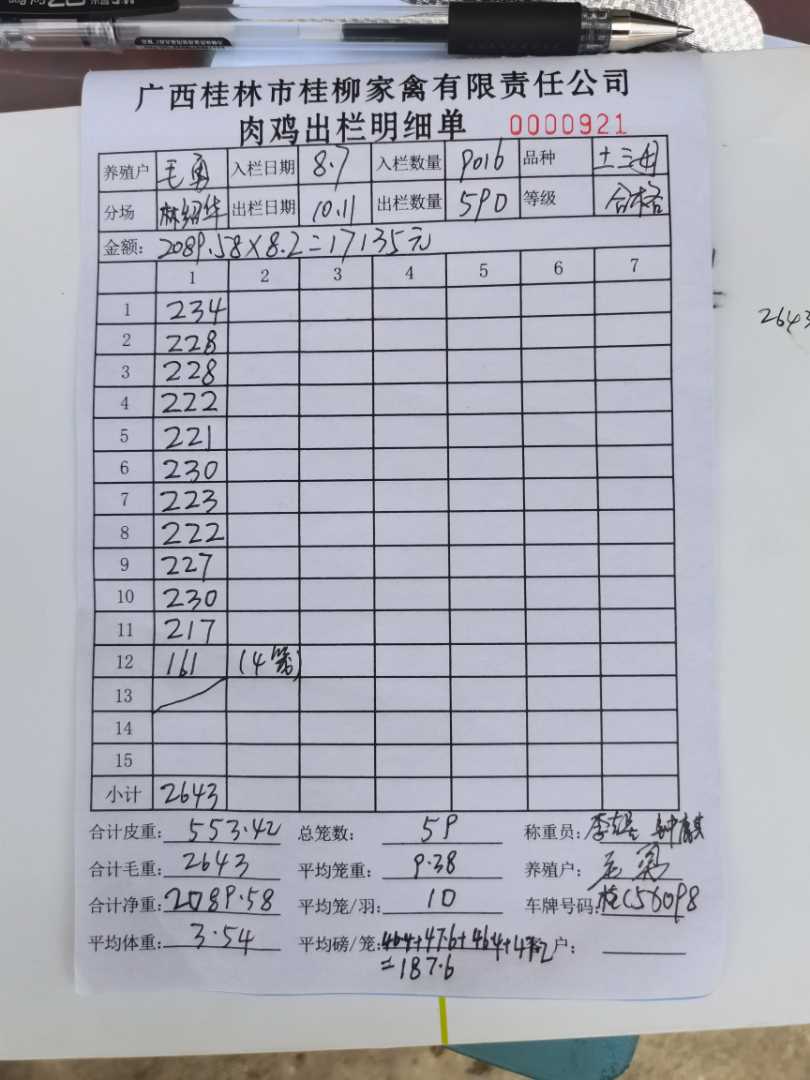 广西桂林市桂柳家禽有限责任公司
肉鸡出栏明细单 0000921
养殖户 毛勇 入栏日期 8.7 入栏数量 9016 品种 土三母
分场 林绍华 出栏日期 10.11 出栏数量 590 等级 合格
金额: 2089.58×8.2=17135元
1 2 3 4 5 6 7
1 234
2 228
3 228
4 222
5 221
6 230
7 223
8 222
9 227
10 230
11 217
12 161 (4笼)
13
14
15
小计 2643
合计皮重: 553.42 总笼数: 59 称重员:
合计毛重: 2643 平均笼重: 9.38 养殖户: 毛勇
合计净重: 2089.58 平均笼/羽: 10 车牌号码: 桂C56098
平均体重: 3.54 平均磅/笼: 46.4+47.6+46.4+47.2 户:
=187.6
2643